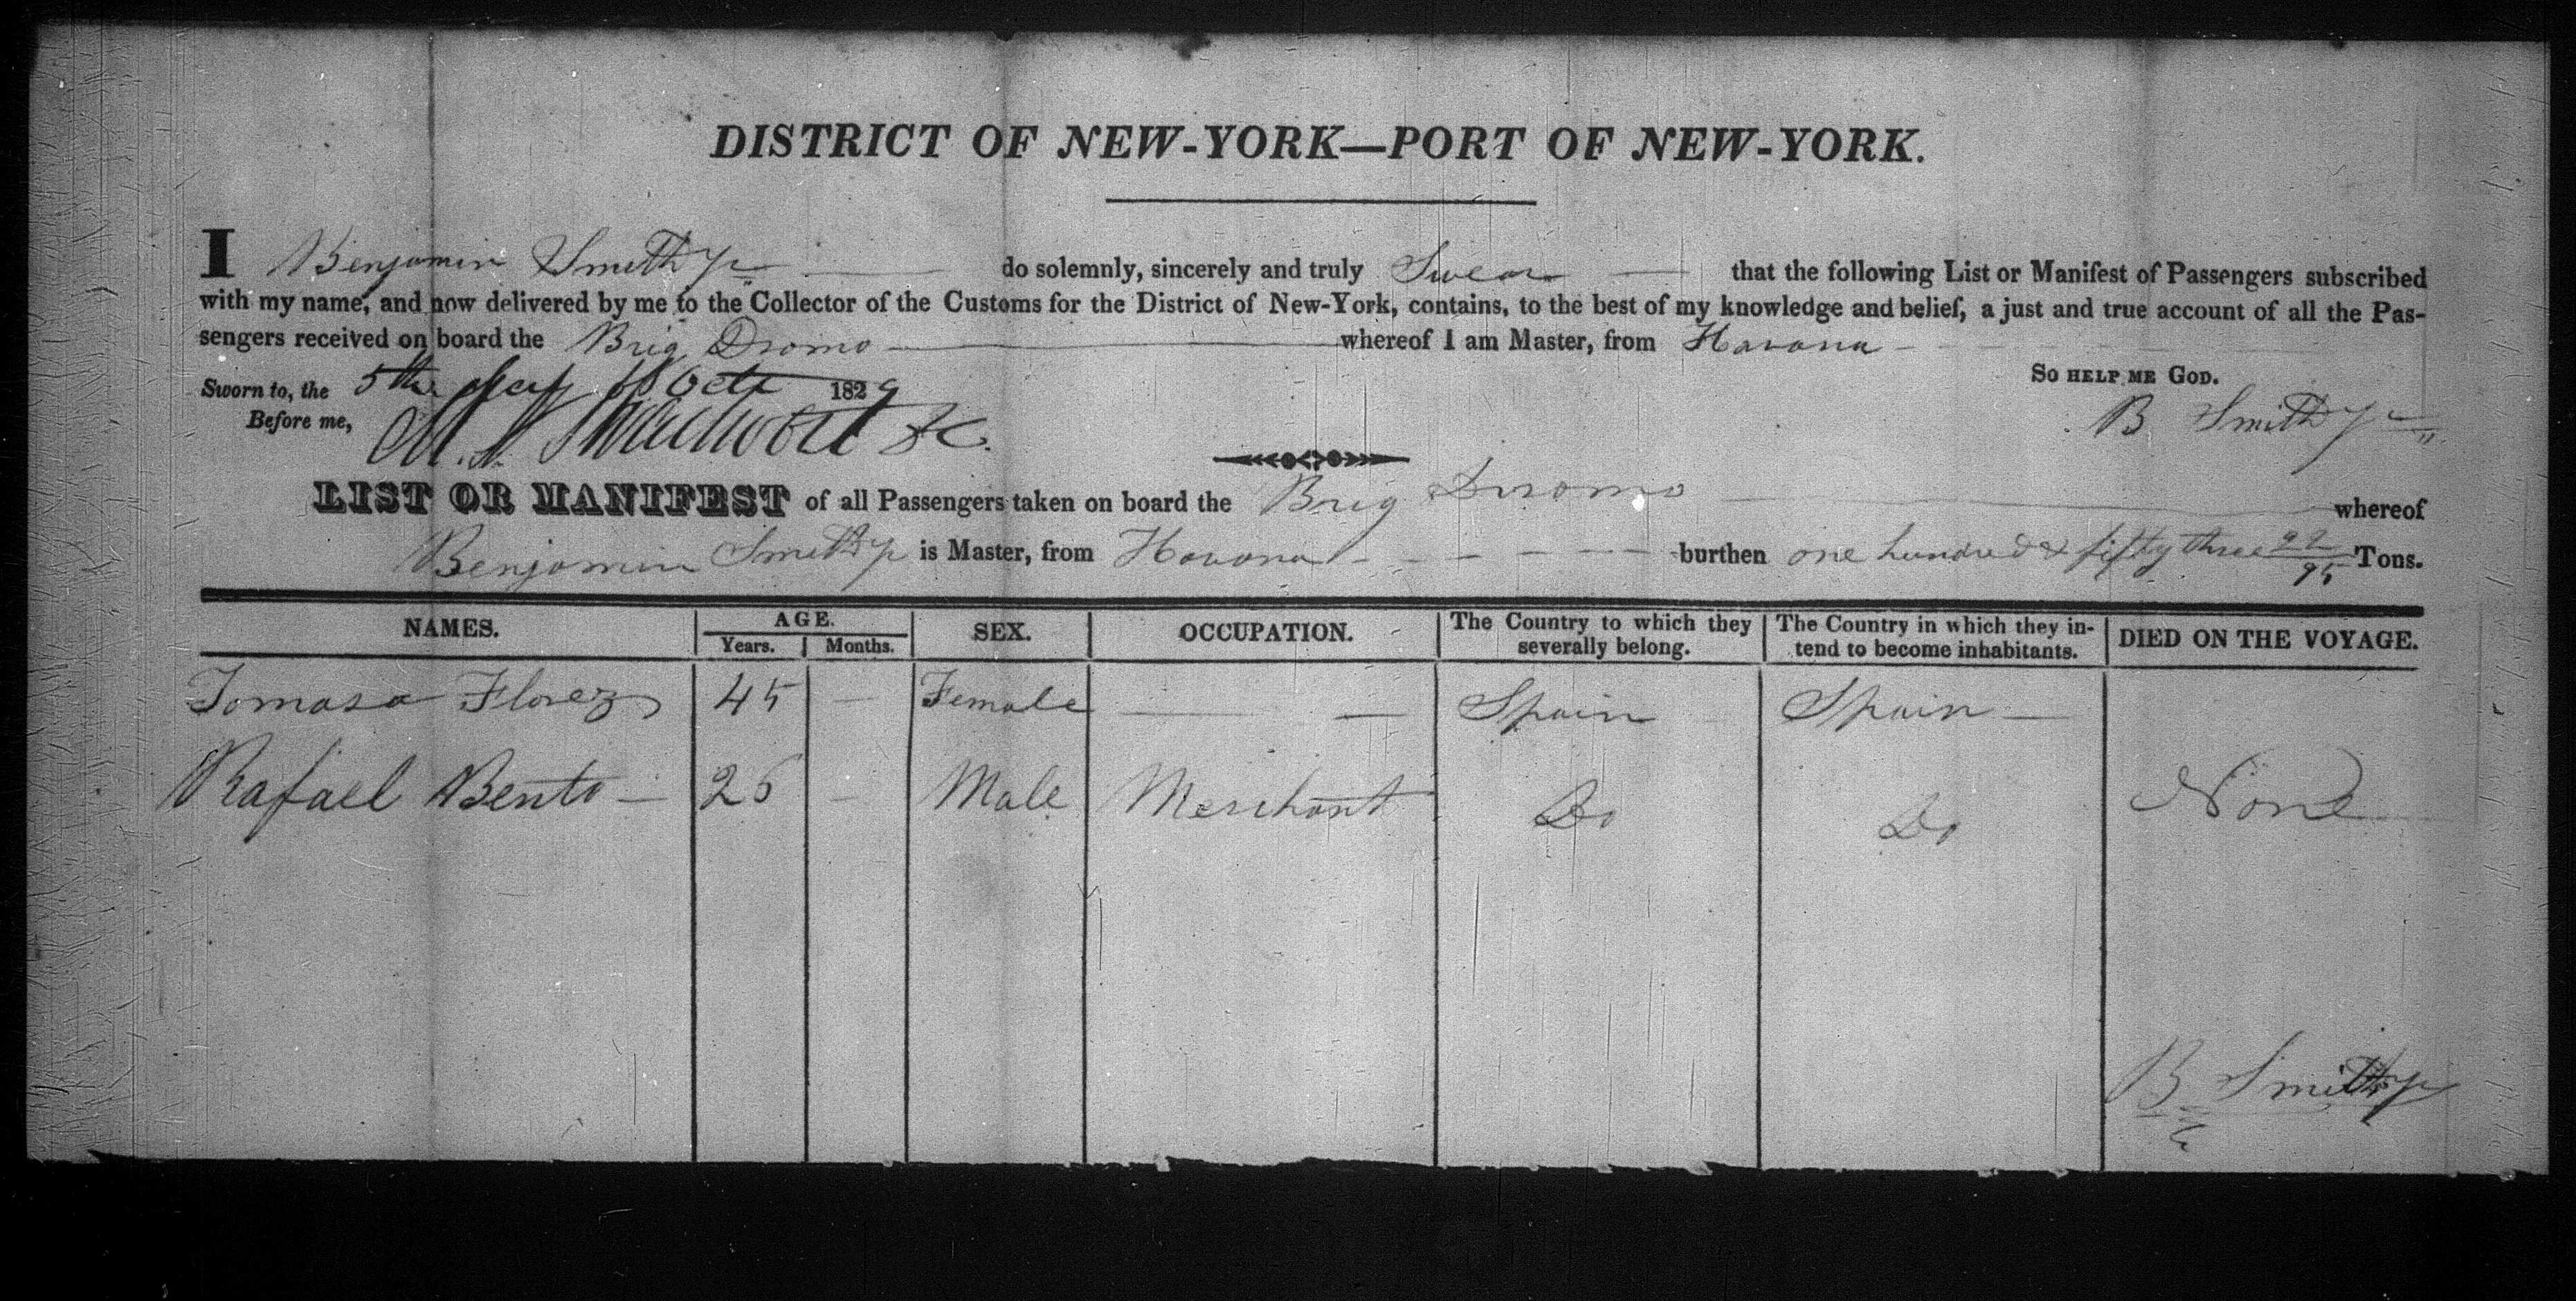 DISTRICT OF NEW-YORK—PORT OF NEW-YORK.
I Benjamin Smith Jr do solemnly, sincerely and truly Swear that the following List or Manifest of Passengers subscribed
with my name, and now delivered by me to the Collector of the Customs for the District of New-York, contains, to the best of my knowledge and belief, a just and true account of all the Pas-
sengers received on board the Brig Dromo whereof I am Master, from Havana
So HELP ME GOD.
Sworn to, the 5th day of Oct 1829
B Smith Jr
Before me,
LIST OR MANIFEST of all Passengers taken on board the Brig Dromo whereof
Benjamin Smith Jr is Master, from Havana burthen one hundred & fifty three Tons.
NAMES. AGE. Years. Months. SEX. OCCUPATION. The Country to which they severally belong. The Country in which they in-tend to become inhabitants. DIED ON THE VOYAGE.
Tomasa Florez 45 — Female — Spain Spain —
Rafael Bento — 26 — Male Merchant Do Do None
B Smith Jr